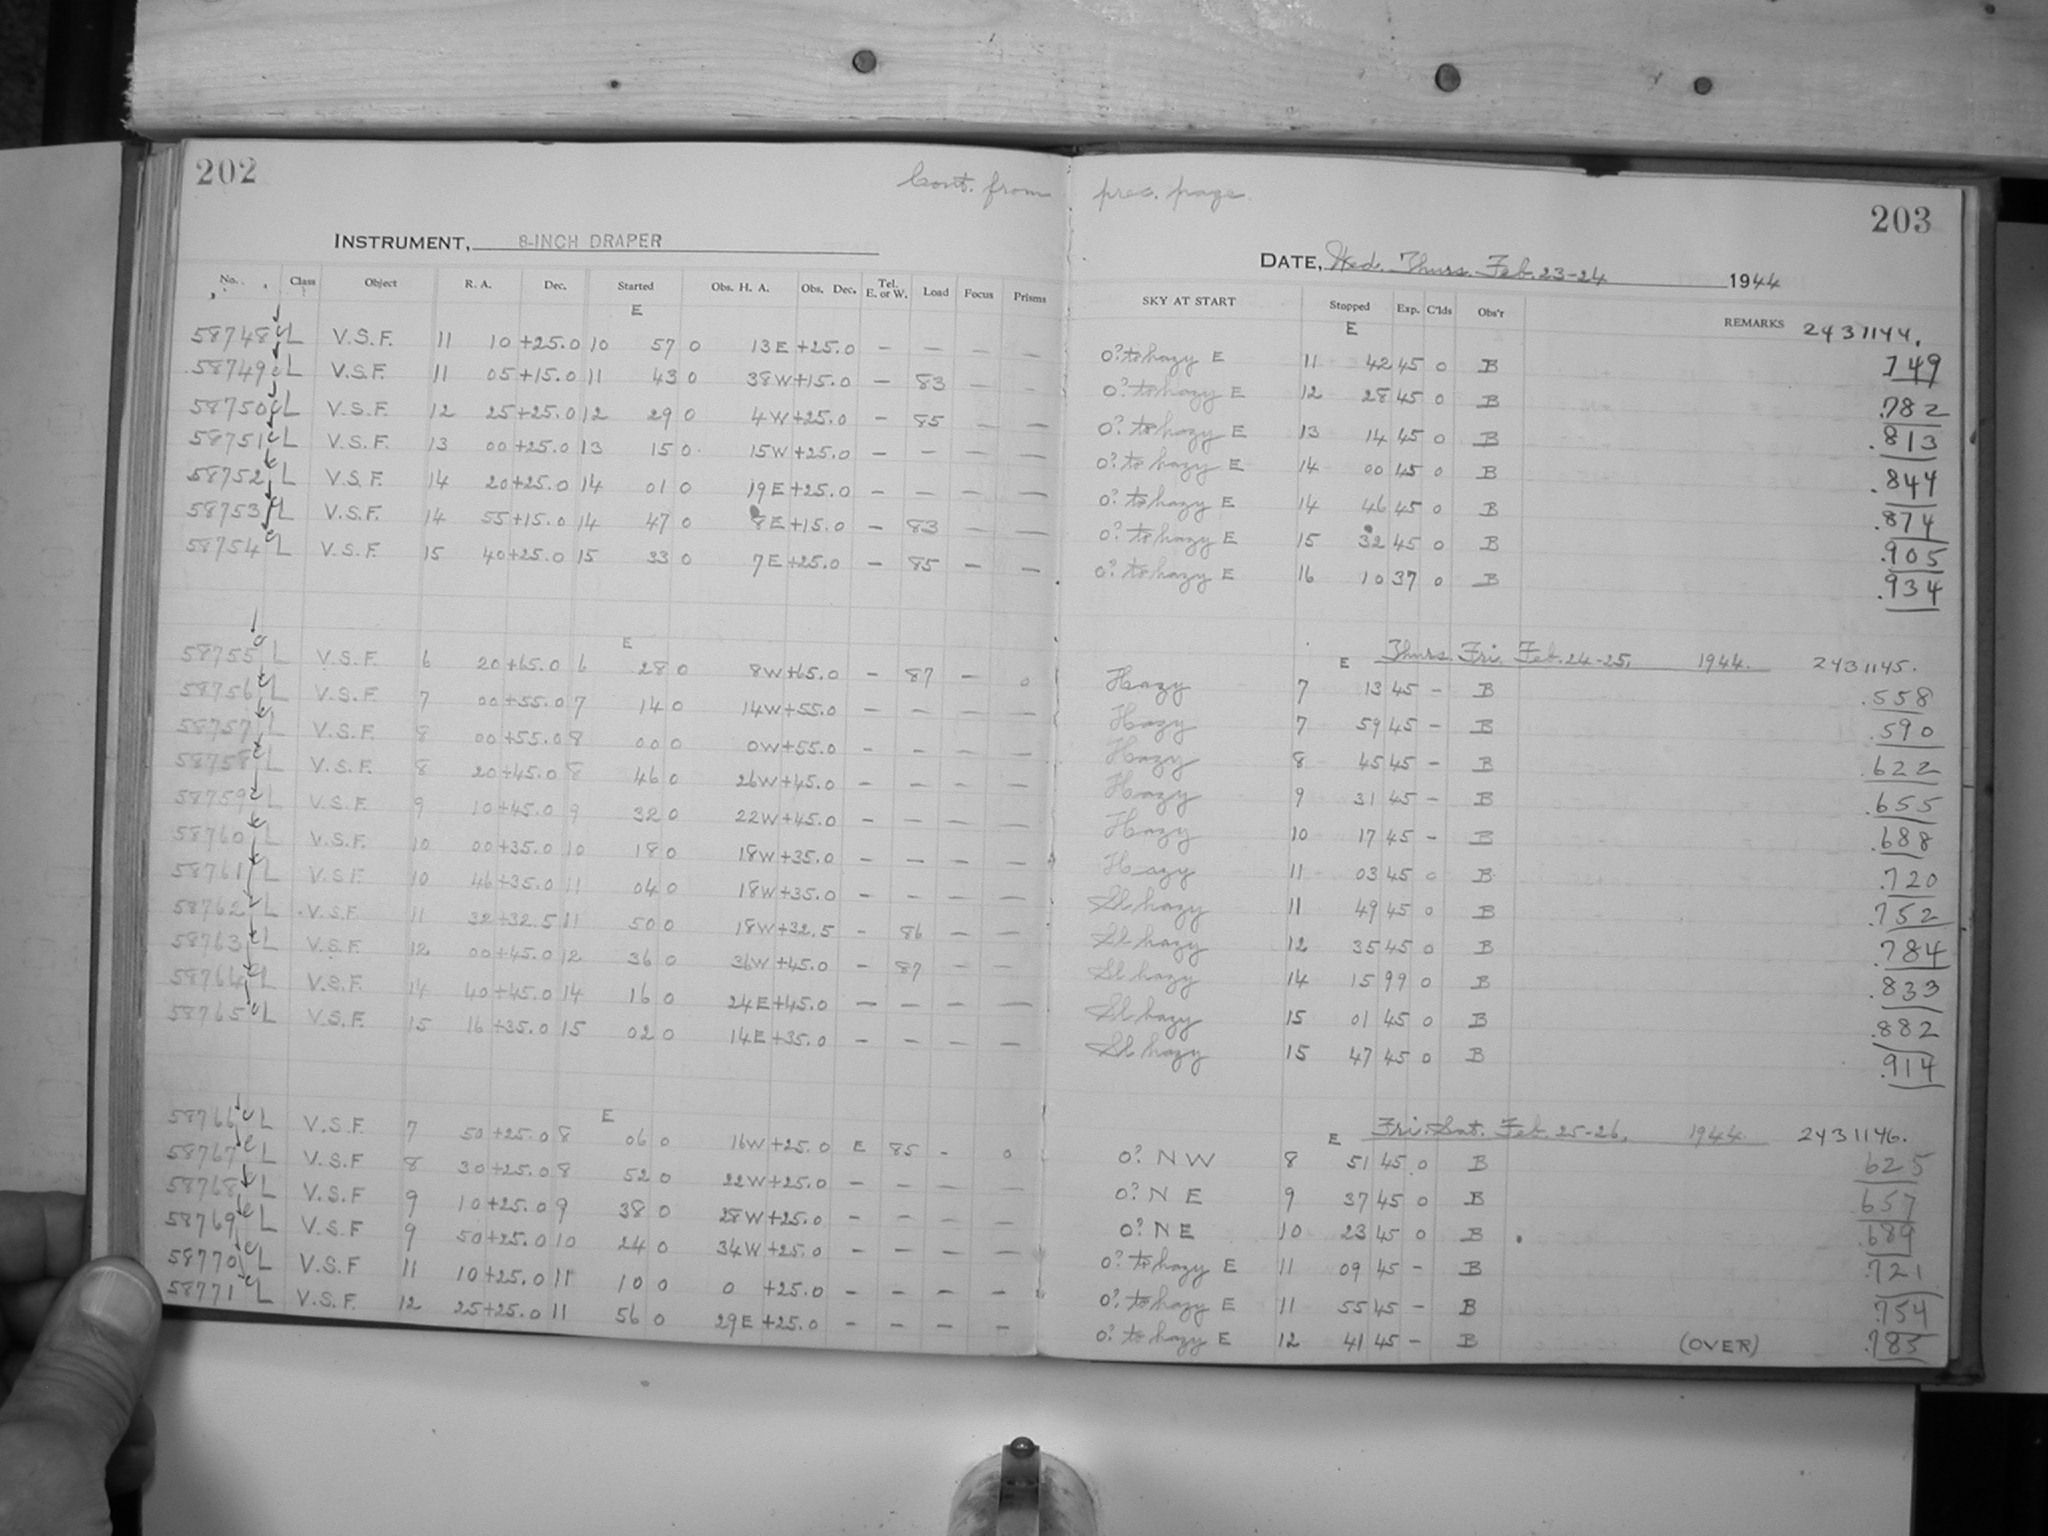 202
Cont. from prec. page.
203
INSTRUMENT, 8-INCH DRAPER
DATE, Wed. Thurs. Feb. 23-24 1944
No. Class Object R. A. Dec. Started Obs. H. A. Obs. Dec. Tel. E. or W. Load Focus Prisms SKY AT START Stopped Exp. C'lds Obs'r REMARKS 2431144.
E E
58748 L V.S.F. 11 10 +25.0 10 57 0 13E +25.0 – – – – 0? to hazy E 11 42 45 0 B .749
58749 L V.S.F. 11 05 +15.0 11 43 0 38W +15.0 – 83 – – 0? to hazy E 12 28 45 0 B .782
58750 L V.S.F. 12 25 +25.0 12 29 0 4W +25.0 – 85 – – 0? to hazy E 13 14 45 0 B .813
58751 L V.S.F. 13 00 +25.0 13 15 0 15W +25.0 – – – – 0? to hazy E 14 00 45 0 B .844
58752 L V.S.F. 14 20 +25.0 14 01 0 19E +25.0 – – – – 0? to hazy E 14 46 45 0 B .874
58753 L V.S.F. 14 55 +15.0 14 47 0 8E +15.0 – 83 – – 0? to hazy E 15 32 45 0 B .905
58754 L V.S.F. 15 40 +25.0 15 33 0 7E +25.0 – 85 – – 0? to hazy E 16 10 37 0 B .934
E E Thurs. Fri. Feb. 24-25, 1944. 2431145.
58755 L V.S.F. 6 20 +65.0 6 28 0 8W +65.0 – 87 – 0 Hazy 7 13 45 – B .558
58756 L V.S.F. 7 00 +55.0 7 14 0 14W +55.0 – – – – Hazy 7 59 45 – B .590
58757 L V.S.F. 8 00 +55.0 8 00 0 0W +55.0 – – – – Hazy 8 45 45 – B .622
58758 L V.S.F. 8 20 +45.0 8 46 0 26W +45.0 – – – – Hazy 9 31 45 – B .655
58759 L V.S.F. 9 10 +45.0 9 32 0 22W +45.0 – – – – Hazy 10 17 45 – B .688
58760 L V.S.F. 10 00 +35.0 10 18 0 18W +35.0 – – – – Hazy 11 03 45 0 B .720
58761 L V.S.F. 10 46 +35.0 11 04 0 18W +35.0 – – – – Sl hazy 11 49 45 0 B .752
58762 L V.S.F. 11 32 +32.5 11 50 0 18W +32.5 – 86 – – Sl hazy 12 35 45 0 B .784
58763 L V.S.F. 12 00 +45.0 12 36 0 36W +45.0 – 87 – – Sl hazy 14 15 99 0 B .833
58764 L V.S.F. 14 40 +45.0 14 16 0 24E +45.0 – – – – Sl hazy 15 01 45 0 B .882
58765 L V.S.F. 15 16 +35.0 15 02 0 14E +35.0 – – – – Sl hazy 15 47 45 0 B .914
E E Fri. Sat. Feb. 25-26, 1944. 2431146.
58766 L V.S.F. 7 50 +25.0 8 06 0 16W +25.0 E 85 – 0 0? NW 8 51 45 0 B .625
58767 L V.S.F 8 30 +25.0 8 52 0 22W +25.0 – – – – 0? NE 9 37 45 0 B .657
58768 L V.S.F 9 10 +25.0 9 38 0 28W +25.0 – – – – 0? NE 10 23 45 0 B .689
58769 L V.S.F 9 50 +25.0 10 24 0 34W +25.0 – – – – 0? to hazy E 11 09 45 – B .721
58770 L V.S.F 11 10 +25.0 11 10 0 0 +25.0 – – – – 0? to hazy E 11 55 45 – B .754
58771 L V.S.F. 12 25 +25.0 11 56 0 29E +25.0 – – – – 0? to hazy E 12 41 45 – B (OVER) .785